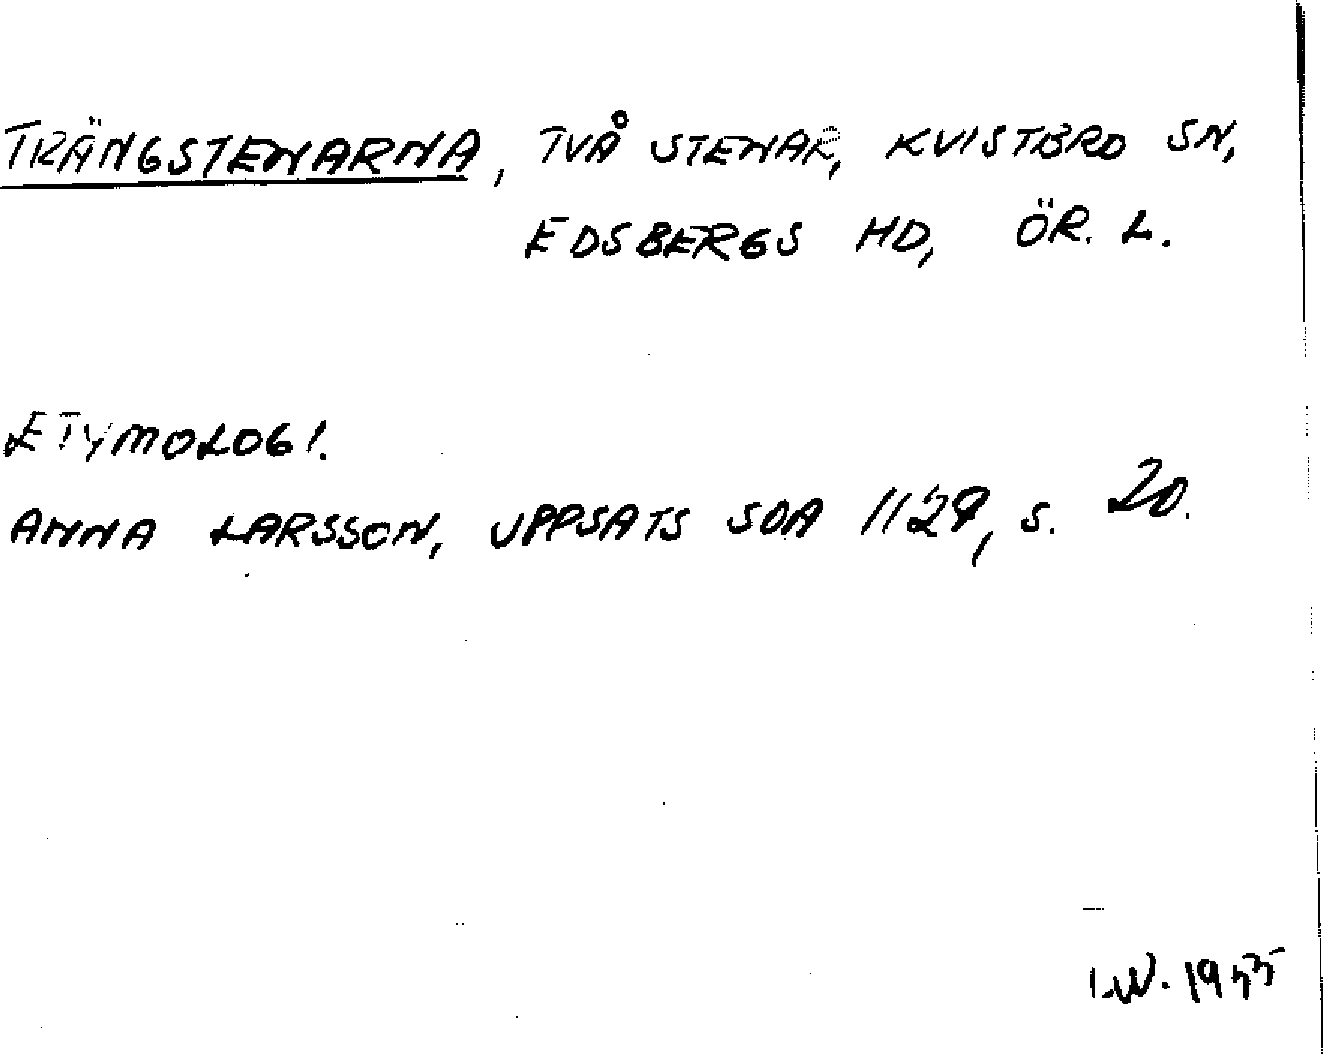 TRÄNGSTENARNA, TVÅ STENAR, KVISTBRO SN,
EDSBERGS HD, ÖR. L.
ETYMOLOGI.
ANNA LARSSON, UPPSATS SOA 1129, S. 20.
I.W. 1955